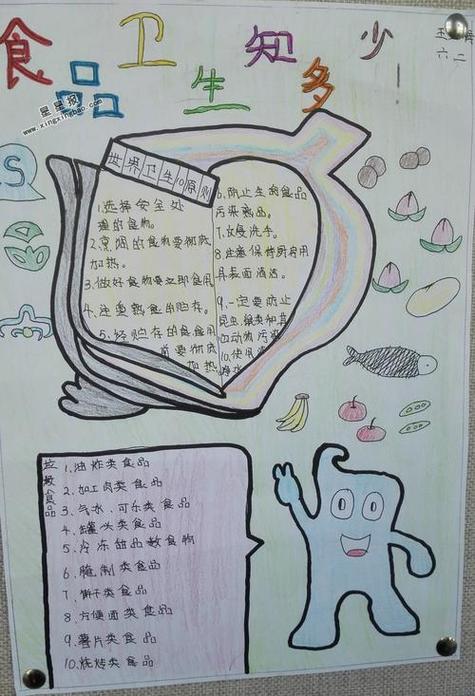 食品卫生知多少!
六二
星星报
www.xingxingbao.com
S
世界卫生10原则
1.选择安全处
理的食物。
2.烹烟的食物要彻底
加热。
3.做好食物要立即食用
4.注重熟食的贮存。
5.经贮存的食食用
前要彻底
加热
6.防止生的食品
污染熟品。
7.反复洗手。
8.注意保持厨房用
具表面清洁。
9.一定要防止
昆虫、猫类和其
他动物污染
10.使用
净水
垃圾食品
1.油炸类食品
2.加工肉类食品
3.气水、可乐类食品
4.罐头类食品
5.冷冻甜品数食物
6.腌制类食品
7.饼干类食品
8.方便面类食品
9.薯片类食品
10.烧烤类食品